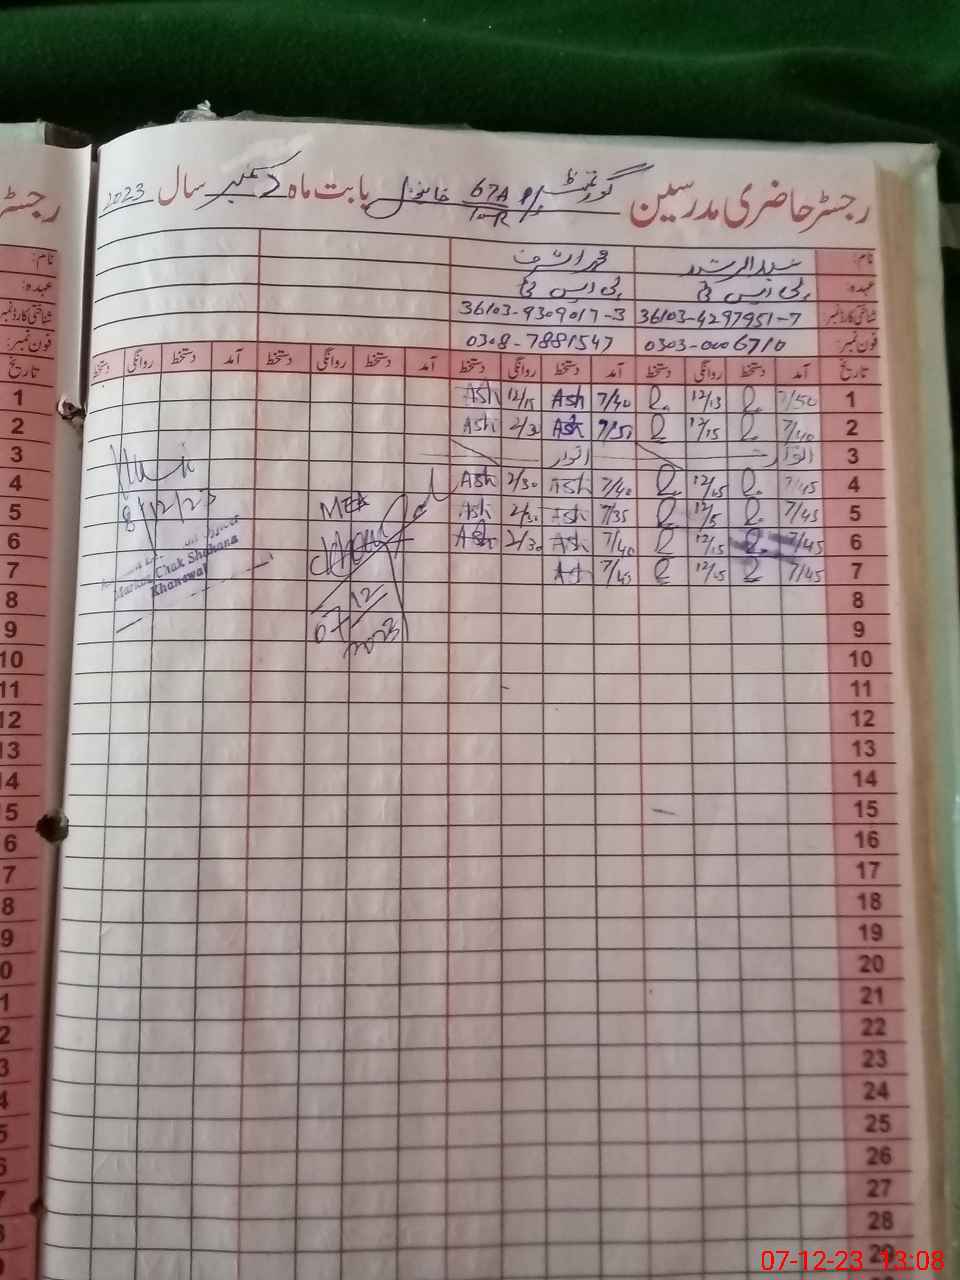 رجسٹر حاضری مدرسین گورنمنٹ P/S 67A/10-R خانیوال بابت ماہ دسمبر سال 2023
نام: عبدالرشید محمد اشرف
عہدہ: پی ایس ٹی پی ایس ٹی
شناختی کارڈ نمبر: 36103-4297951-7 36103-9309017-3
فون نمبر: 0303-0006710 0308-7881547
تاریخ آمد دستخط روانگی دستخط آمد دستخط روانگی دستخط آمد دستخط روانگی دستخط آمد دستخط روانگی دستخط
1 7/50 12/15 7/40 Ash 12/15 Ash
2 7/40 12/15 7/35 Ash 2/30 Ash
3 اتوار اتوار
4 7/45 12/05 7/40 Ash 2/30 Ash
5 7/45 12/5 7/35 Ash 2/30 Ash
6 7/45 12/15 7/40 Ash 2/30 Ash
7 7/45 12/05 7/45 Ash
MEA
07/12/2023
8/12/23
Markaz Chak Shahana
Khanewal
8
9
10
11
12
13
14
15
16
17
18
19
20
21
22
23
24
25
26
27
28
29
07-12-23 13:08